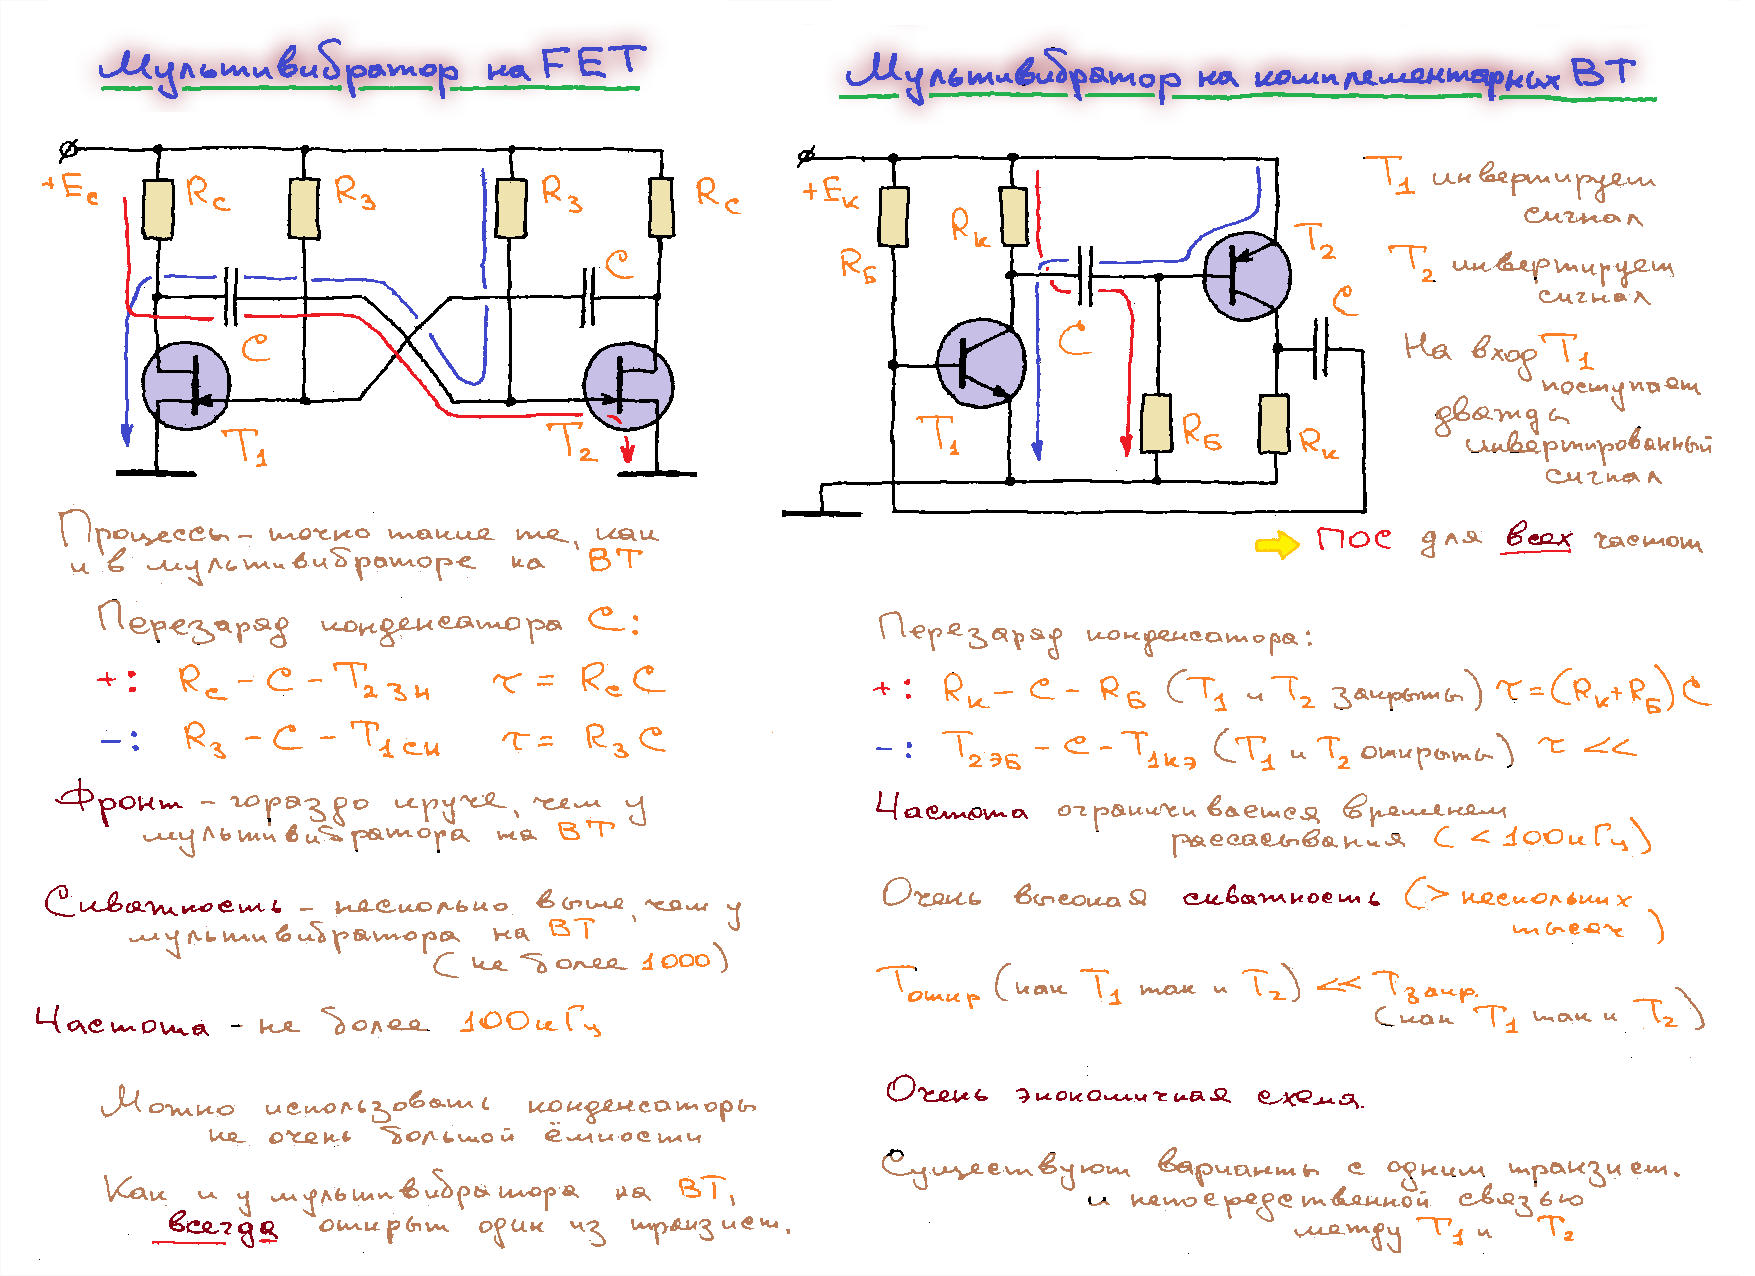 Мультивибратор на FET
+Eс
Rс
Rз
Rз
Rс
C
C
T1
T2
Процессы – точно такие же, как
и в мультивибраторе на BT
Перезаряд конденсатора C:
+: Rс – C – T2 зи τ = RсC
–: Rз – C – T1 си τ = RзC
Фронт – гораздо круче, чем у
мультивибратора на BT
Скважность – несколько выше, чем у
мультивибратора на BT
(не более 1000)
Частота – не более 100кГц
Можно использовать конденсаторы
не очень большой ёмкости
Как и у мультивибратора на BT,
всегда открыт один из транзист.
Мультивибратор на комплементарных BT
+Eк
Rк
Rб
T2
C
C
T1
Rб
Rк
T1 инвертирует
сигнал
T2 инвертирует
сигнал
На вход T1
поступает
дважды
инвертированный
сигнал
ПОС для всех частот
Перезаряд конденсатора:
+: Rк – C – Rб (T1 и T2 закрыты) τ=(Rк+Rб)C
–: T2эб – C – T1кэ (T1 и T2 открыты) τ <<
Частота ограничивается временем
рассасывания (<100кГц)
Очень высокая скважность (> нескольких
тысяч)
Tоткр (как T1 так и T2) << Tзакр.
(как T1 так и T2)
Очень экономичная схема.
Существуют варианты с одним транзист.
и непосредственной связью
между T1 и T2